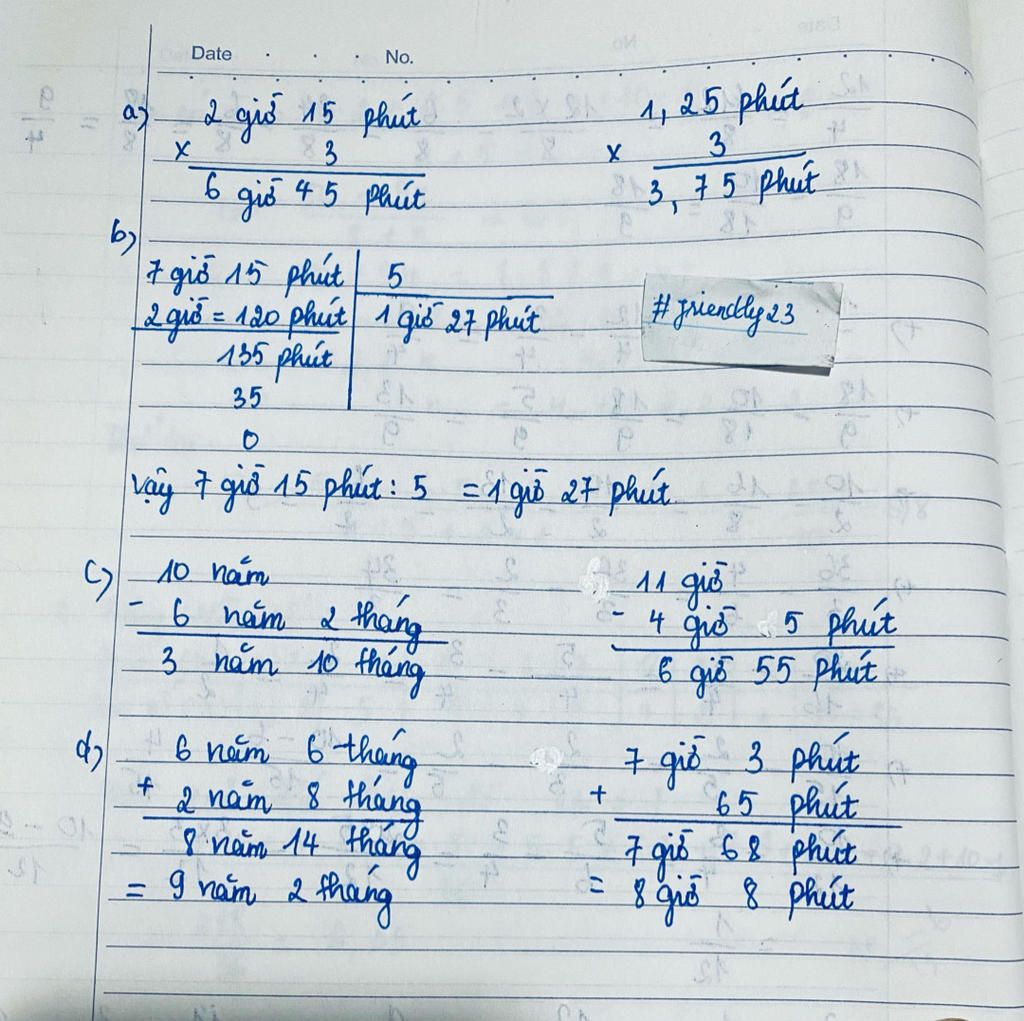 Date . . . No.
a) 2 giờ 15 phút
x 3
6 giờ 45 phút
1,25 phút
x 3
3,75 phút
b)
7 giờ 15 phút 5
2 giờ = 120 phút 1 giờ 27 phút
135 phút
35
0
#friendly23
vậy 7 giờ 15 phút : 5 = 1 giờ 27 phút.
c) 10 năm
- 6 năm 2 tháng
3 năm 10 tháng
11 giờ
- 4 giờ 5 phút
6 giờ 55 phút
d) 6 năm 6 tháng
+ 2 năm 8 tháng
8 năm 14 tháng
= 9 năm 2 tháng
7 giờ 3 phút
+ 65 phút
7 giờ 68 phút
= 8 giờ 8 phút